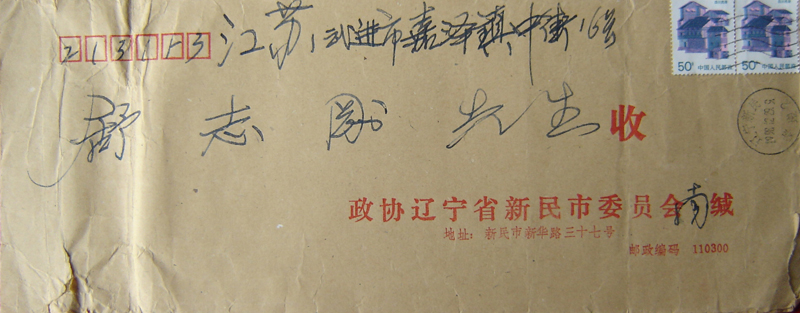 213153 江苏,武进市嘉泽镇,中街16号
舒志刚先生收
政协辽宁省新民市委员会 缄
地址:新民市新华路三十七号
邮政编码 110300
50分 中国人民邮政
50分 中国人民邮政